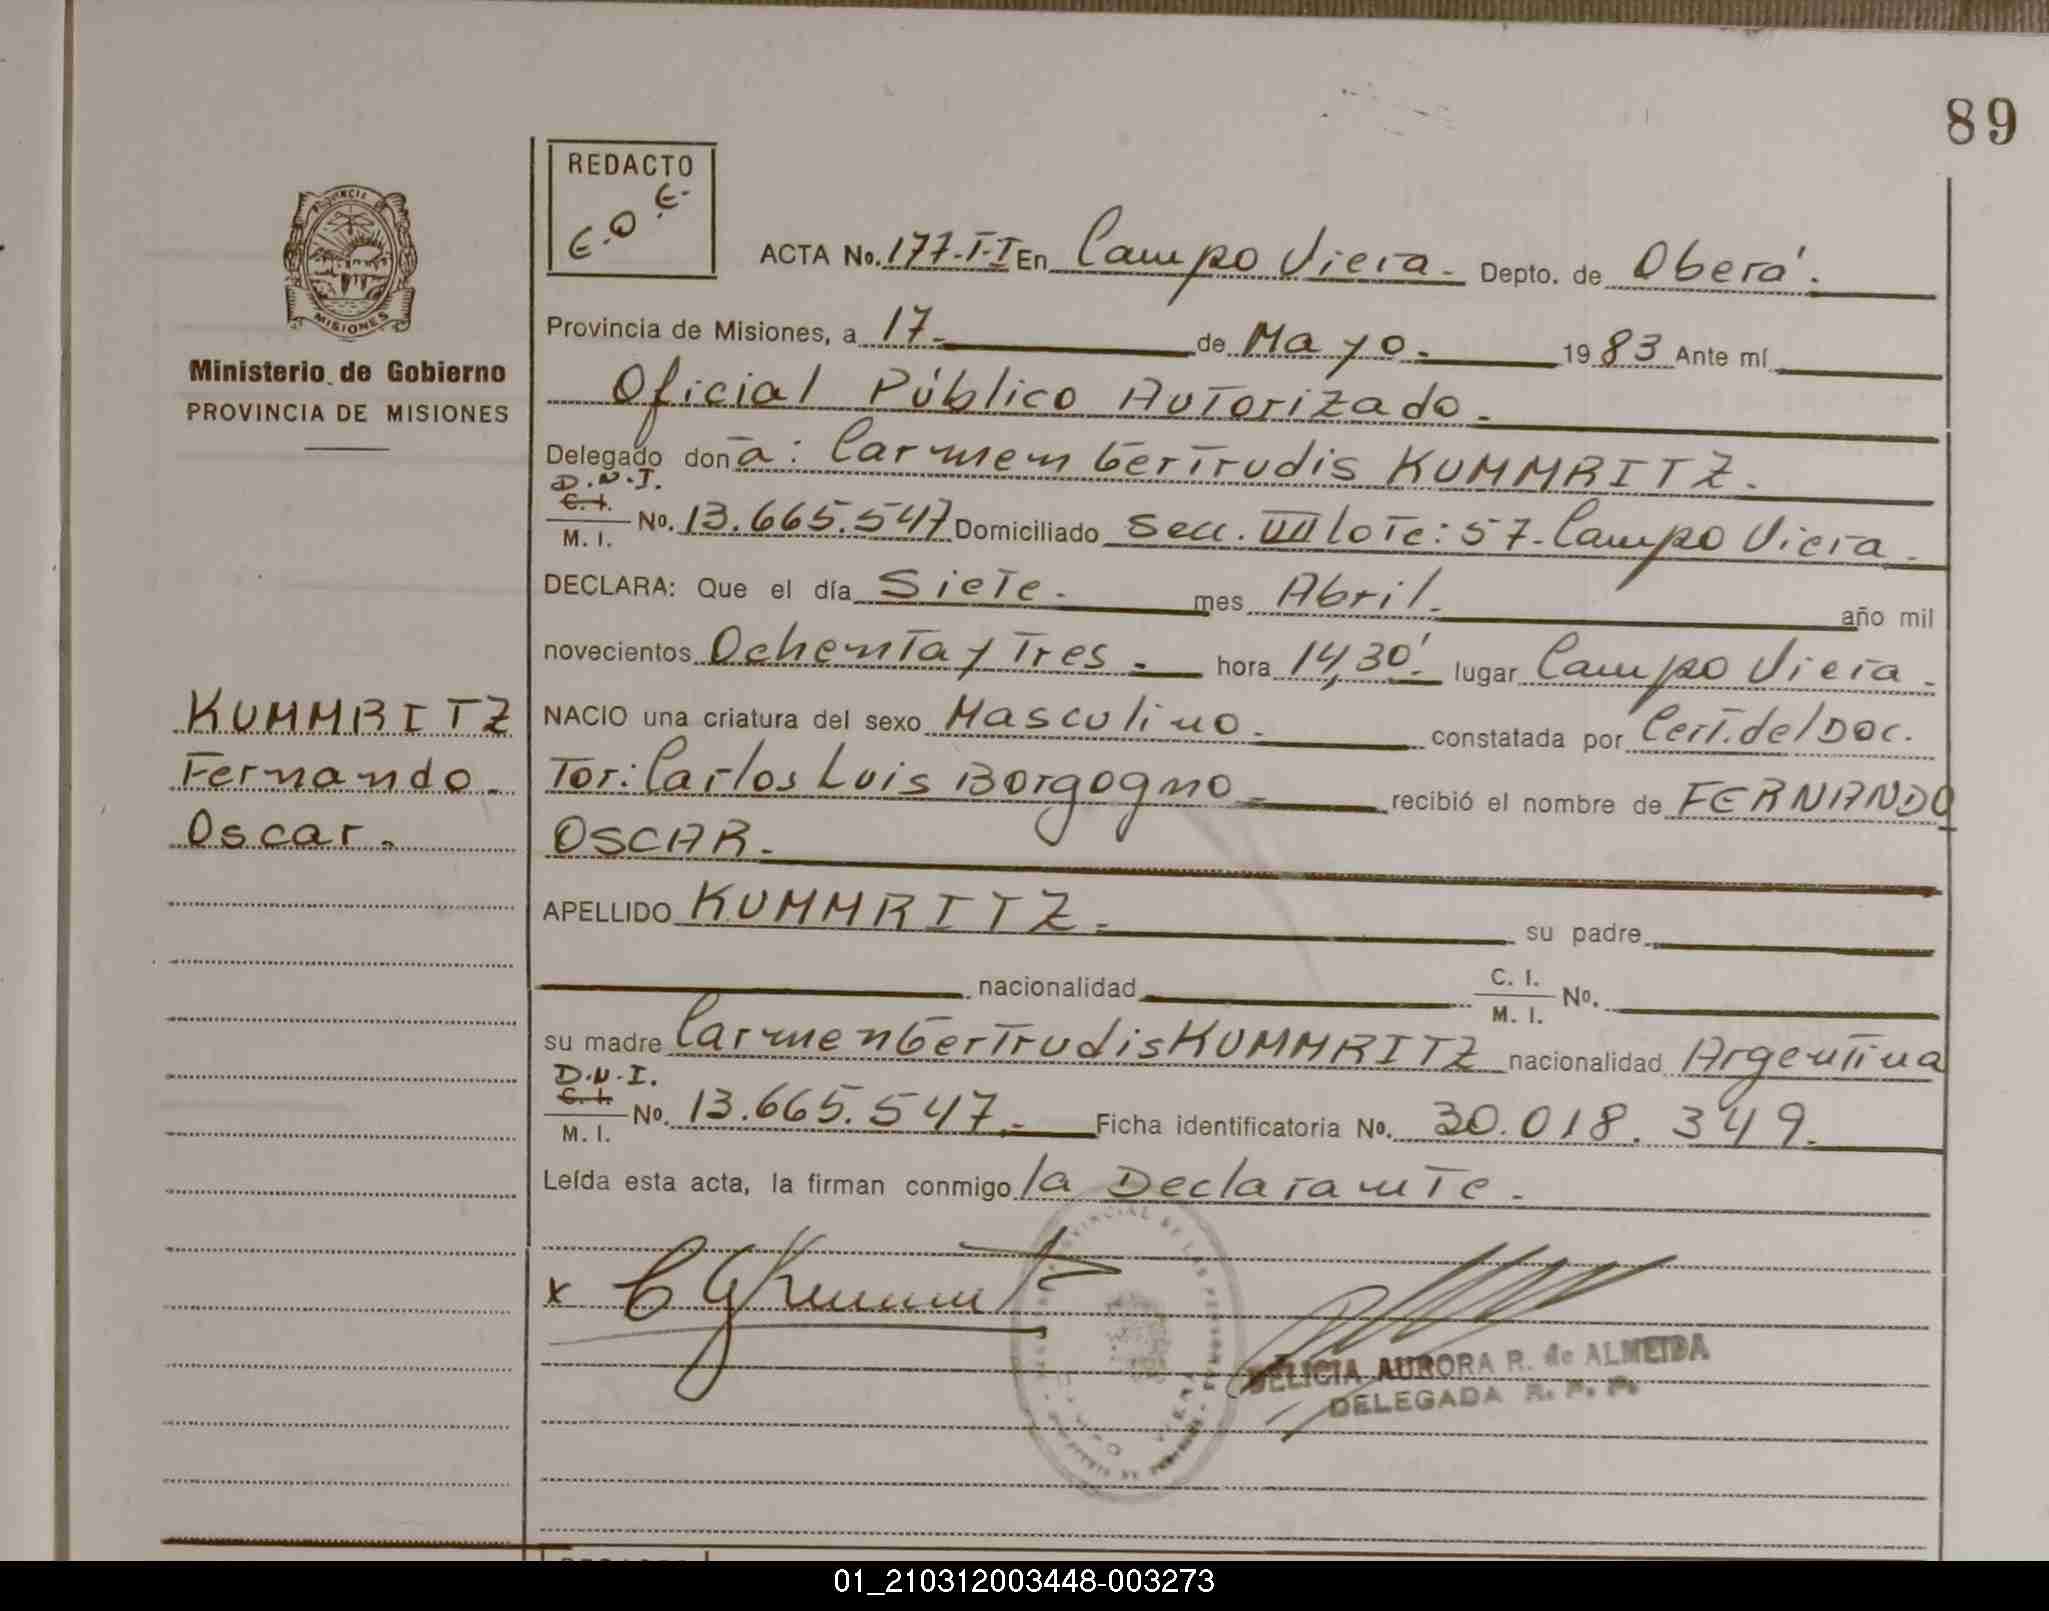 89
REDACTO
E.O.E.
PROVINCIA
MISIONES
Ministerio de Gobierno
PROVINCIA DE MISIONES
ACTA No. 177-T-I En Campo Viera.- Depto. de Oberá.
Provincia de Misiones, a 17.- de Mayo.- 1983 Ante mí
Oficial Público Autorizado.-
Delegado doña: Carmen Gertrudis KUMMRITZ.-
D.N.I.
C. I.
M. I.
No. 13.665.547 Domiciliado Secc. VIII lote: 57- Campo Viera.-
DECLARA: Que el día Siete.- mes Abril.- año mil
novecientos Ochenta y Tres.- hora 14,30'.- lugar Campo Viera.-
NACIO una criatura del sexo Masculino.- constatada por Cert. del Doc.
KUMMRITZ
Tor: Carlos Luis Borgogno.- recibió el nombre de FERNANDO
Fernando.
OSCAR.-
Oscar.-
APELLIDO KUMMRITZ.- su padre
nacionalidad C. I. M. I. No.
su madre Carmen Gertrudis KUMMRITZ nacionalidad Argentina
D.N.I.
C. I.
M. I.
No. 13.665.547.- Ficha identificatoria No. 30.018.349.
Leída esta acta, la firman conmigo la Declarante.-
x C G Kummritz
DELICIA AURORA R. de ALMEIDA
DELEGADA R. P. P.
01_210312003448-003273